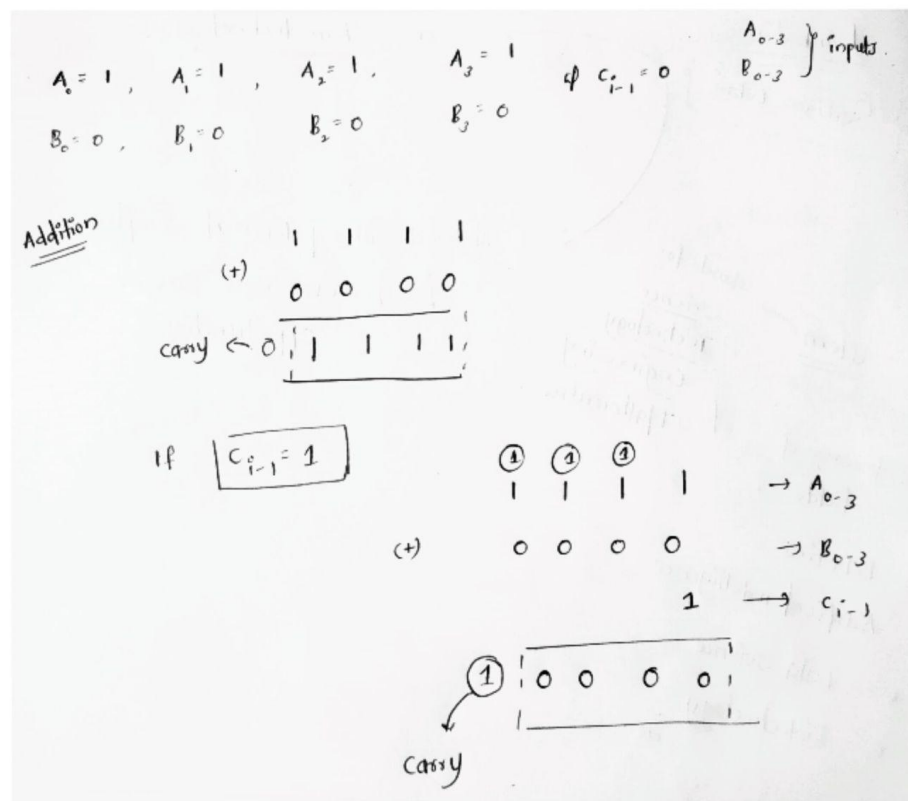 A₀ = 1, A₁ = 1, A₂ = 1, A₃ = 1 if Cᵢ₋₁ = 0 A₀₋₃ } inputs.
B₀ = 0, B₁ = 0 B₂ = 0 B₃ = 0 B₀₋₃
Addition
1 1 1 1
(+)
0 0 0 0
carry ← 0 1 1 1 1
If Cᵢ₋₁ = 1
1 1 1
1 1 1 1 → A₀₋₃
(+) 0 0 0 0 → B₀₋₃
1 → Cᵢ₋₁
1 0 0 0 0
Carry